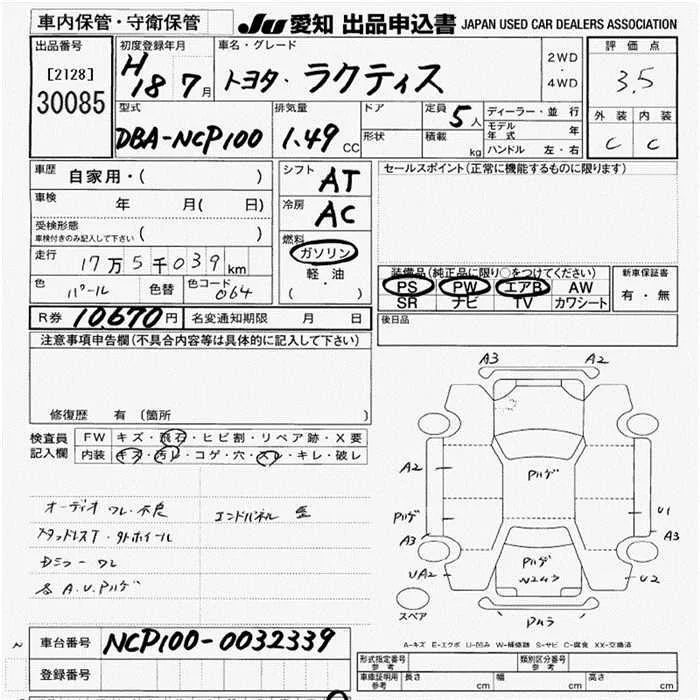 車内保管・守衛保管 JU 愛知 出品申込書 JAPAN USED CAR DEALERS ASSOCIATION
出品番号 初度登録年月 車名・グレード 2WD・4WD 評価点
[2128] H18 7月 トヨタ・ラクティス 3.5
30085
型式 排気量 ドア 定員 5人 ディーラー・並行 外装 内装
DBA-NCP100 1.49 CC 形状 積載 kg モデル年式 年 C C
ハンドル 左・右
車歴 自家用・( ) シフト AT セールスポイント(正常に機能するものに限ります)
車検 年 月( 日) 冷房 AC
受検形態
車検付きのみ記入して下さい ( )
燃料 ガソリン
走行 17万5千039km 軽・油
( ・ )
装備品(純正品に限り○をつけてください) 新車保証書
色 パール 色替 色コード 064 PS PW エアB AW 有・無
SR ナビ TV カワシート
R券 10,670円 名変通知期限 月 日 後日品
注意事項申告欄(不具合内容等は具体的に記入して下さい)
修復歴 有 (箇所 )
検査員記入欄 FW キズ・飛石・ヒビ割・リペア跡・X要
内装 キズ・汚レ・コゲ・穴・スレ・キレ・破レ
オーディオ ワレ・不良 エンドパネル
スタッドレスT・外ホイール
A.U.Pハゲ
A3 A2
A2 Pハゲ
Pハゲ U1
A3 A3
Pハゲ
UA2 U2
スペア
A-キズ E-エクボ U-凹み W-補修跡 S-サビ C-腐食 XX-交換済
車台番号 NCP100-0032339
登録番号
形式指定番号 参考 類別区分番号 参考
車庫証明用 参考 長さ cm 幅 cm 高さ cm